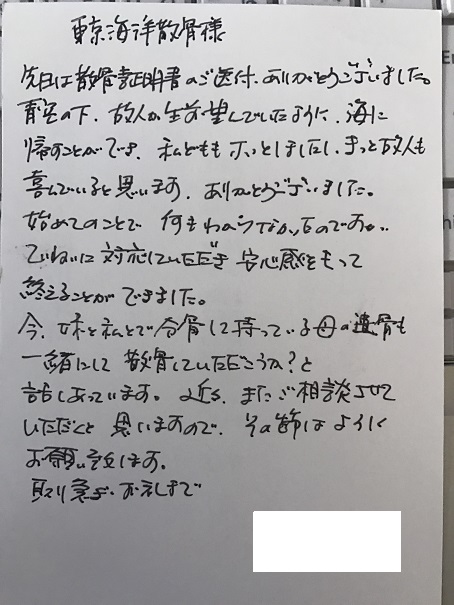 東京海洋散骨様
先日は散骨証明書のご送付、ありがとうございました。
青空の下、故人が生前望んでいたように、海に
帰すことができ、私どももホッとしましたし、きっと故人も
喜んでいると思います。ありがとうございました。
始めてのことで何もわからなかったのですが、
ていねいに対応していただき安心感をもって
終えることができました。
今、妹と私とで分骨して持っている母の遺骨も
一緒にして散骨していただこうか?と
話しあっています。近々、またご相談させて
いただくと思いますので、その節はよろしく
お願い致します。
取り急ぎ、お礼まで